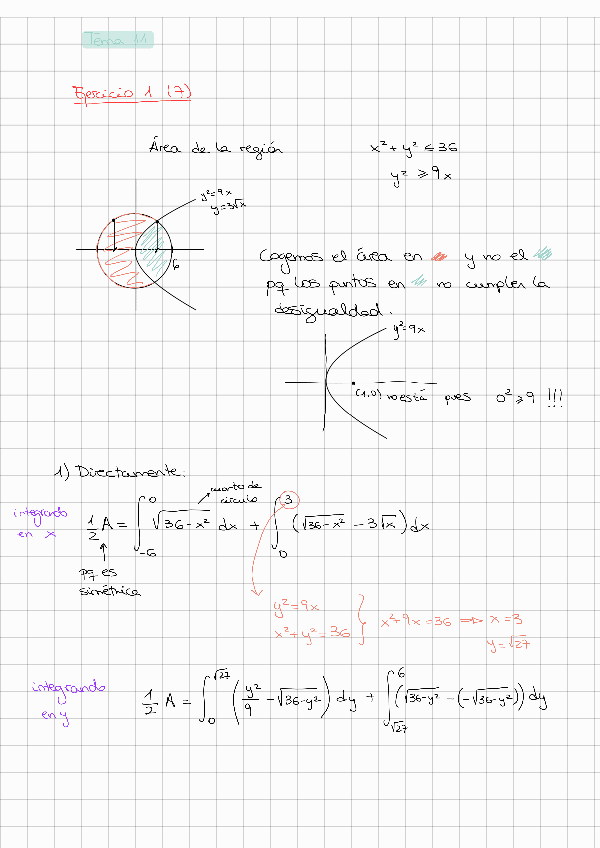 Tema 11
Ejercicio 1 (7)
Área de la región x² + y² ≤ 36
y² ≥ 9x
y² = 9x
y = 3√x
6
Cogemos el área en y no el
pq los puntos en no cumplen la
desigualdad.
y² = 9x
(1,0) no está pues 0² ≥ 9 !!!
1) Directamente:
cuarto de
círculo
integrando
en x
½A = ∫_{-6}^{0} √(36-x²) dx + ∫_{0}^{3} (√(36-x²) - 3√x) dx
pq es
simétrica
y² = 9x
x² + y² = 36 } x² + 9x = 36 ⇒ x = 3
y = √27
integrando
en y
½ A = ∫_{0}^{√27} (y²/9 - √(36-y²)) dy + ∫_{√27}^{6} (√(36-y²) - (-√(36-y²))) dy